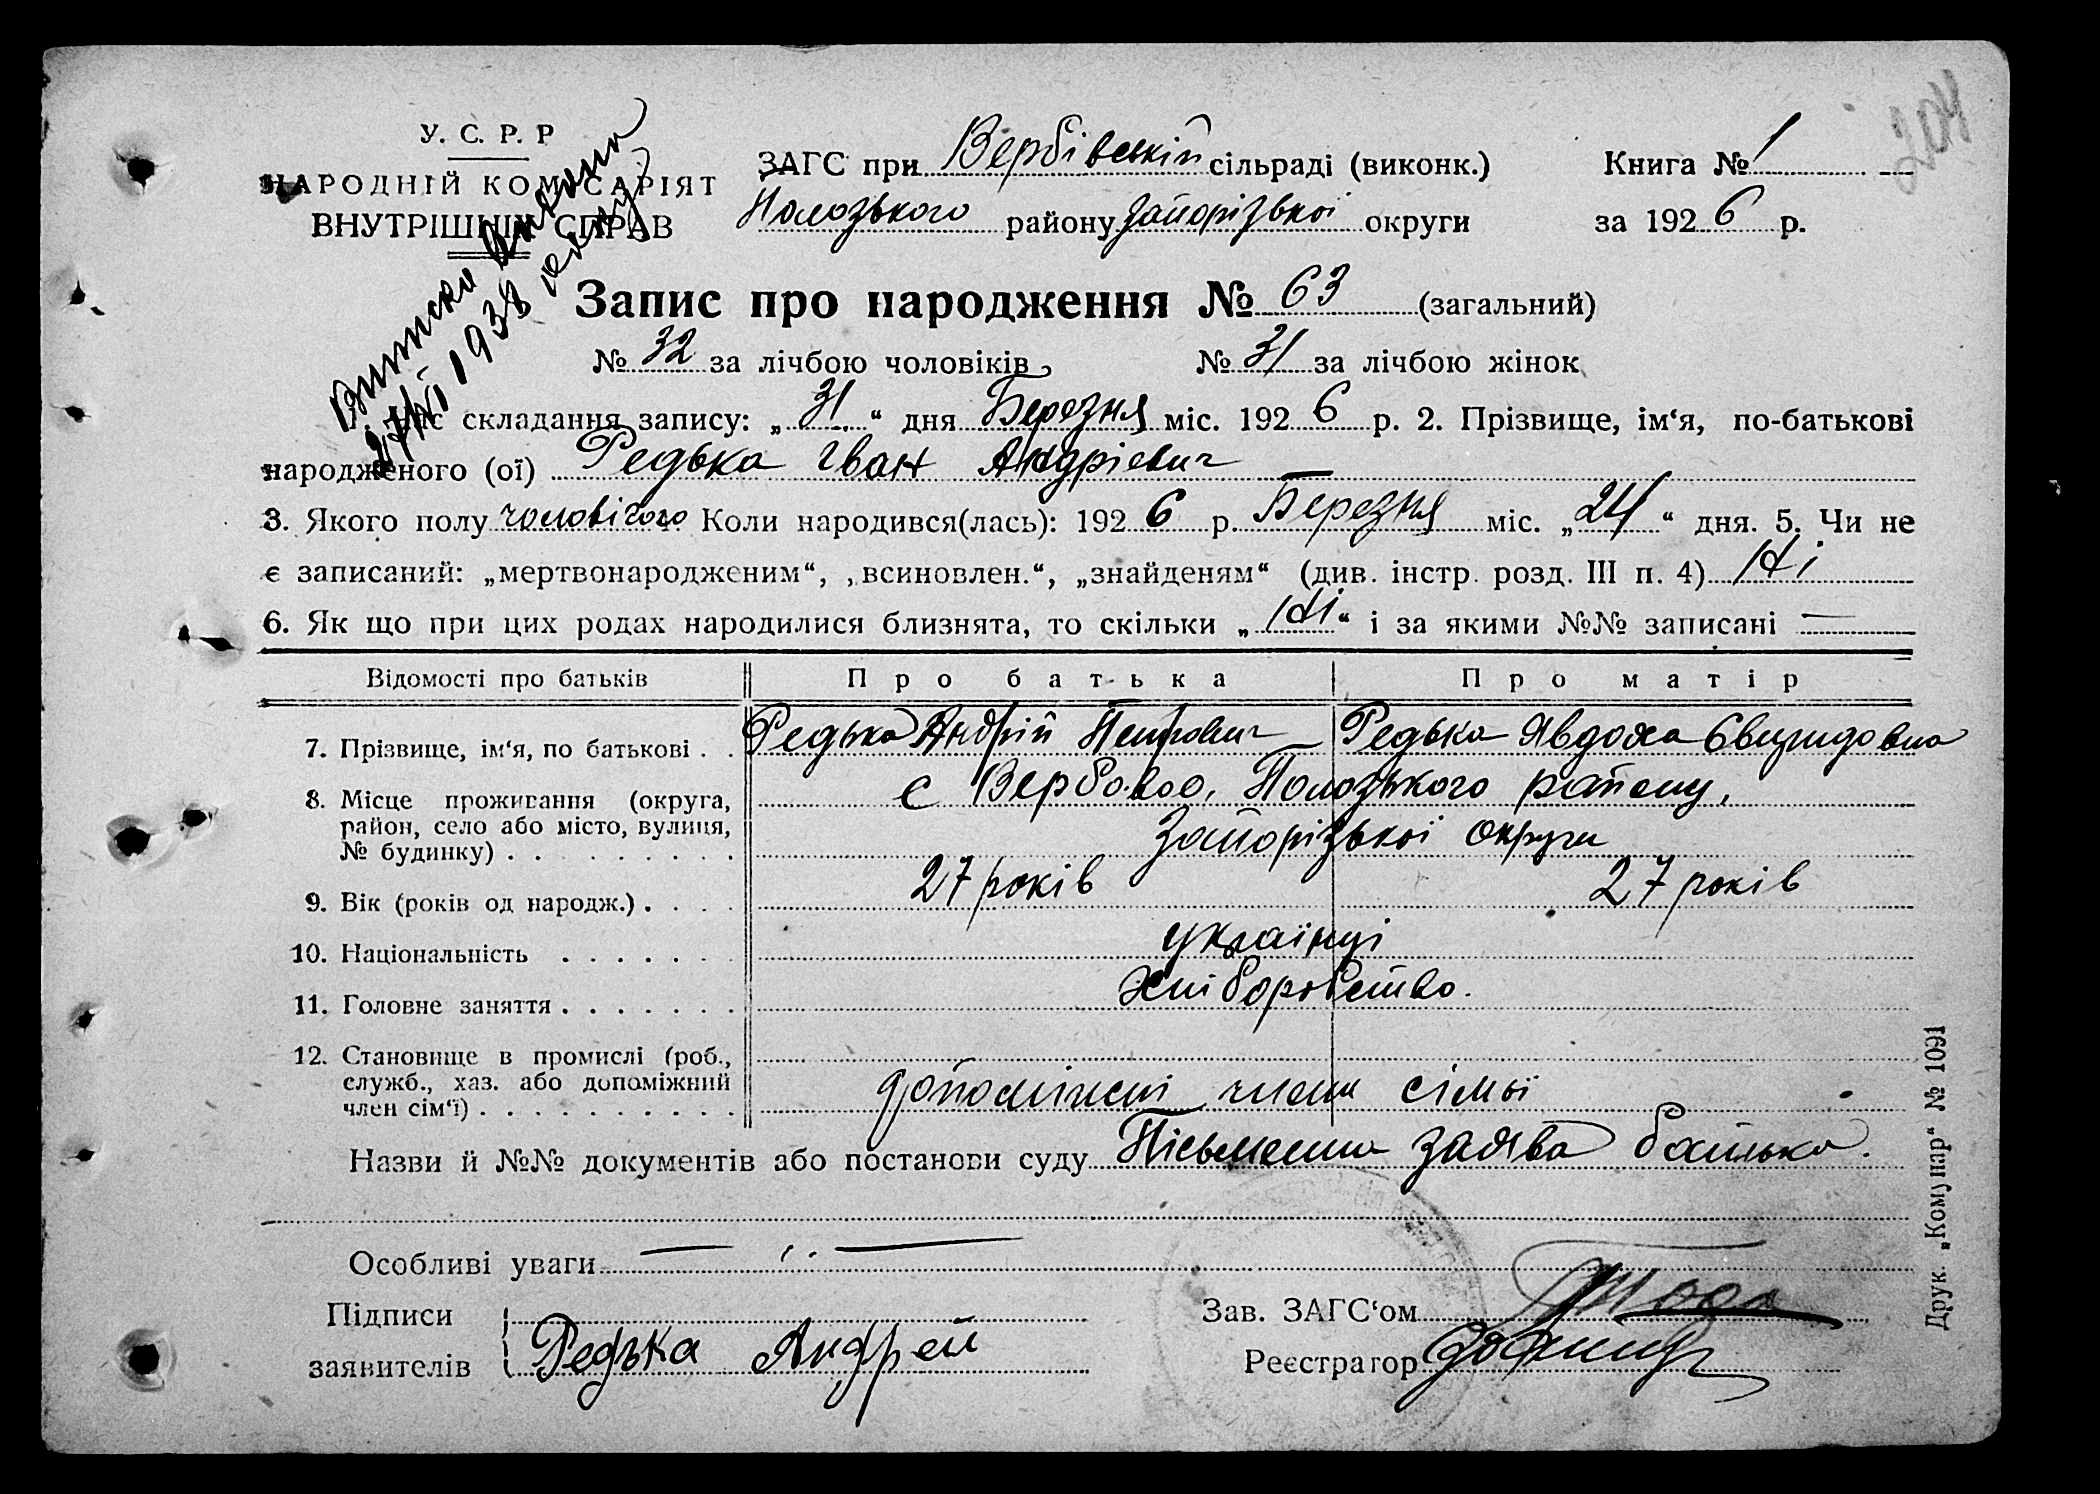 У. С. Р. Р
НАРОДНІЙ КОМІСАРІЯТ
ВНУТРІШНІХ СПРАВ
Виписка видана
27/XI 1938 року
ЗАГС при Вербівській сільраді (виконк.)
Полозького району Запорізької округи
Книга № 1
за 1926 р.
Запис про народження № 63 (загальний)
№ 32 за лічбою чоловіків, № 31 за лічбою жінок
1. Час складання запису: „31“ дня Березня міс. 1926 р. 2. Прізвище, ім‘я, по-батькові
народженого (ої) Редька Іван Андріевич
3. Якого полу чоловічого Коли народився(лась): 1926 р. Березня міс. „24“ дня. 5. Чи не
є записаний: „мертвонародженим“, „всиновлен.“, „знайденям“ (див. інстр. розд. III п. 4) Ні
6. Як що при цих родах народилися близнята, то скільки „Ні“ і за якими №№ записані —
Відомості про батьків Про батька Про матір
7. Прізвище, ім‘я, по батькові . . Редька Андрій Петрович Редька Явдоха
8. Місце проживання (округа,
район, село або місто, вулиця,
№ будинку) . . . . . . . . .
с Вербовое, Полозького району,
Запорізької округи
9. Вік (років од народж.) . . . . 27 років 27 років
10. Національність . . . . . . . українці
11. Головне заняття . . . . . . . Хліборобство.
12. Становище в промислі (роб.,
служб., хаз. або допоміжний
член сім‘ї) . . . . . . . . . .
допоміжні члени сімьї
Назви й №№ документів або постанови суду Пісьменна заява батька.
Особливі уваги — „ —
Підписи
заявителів
Редька Андрей
Зав. ЗАГС‘ом
Реєстратор
Друк. „Комунар“ № 1091